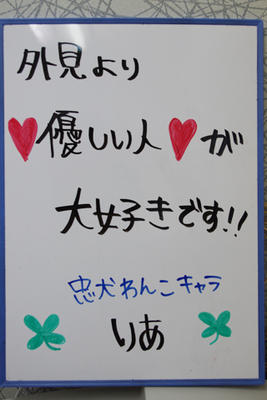 外見より
優しい人が
大好きです!!
忠犬わんこキャラ
りあ